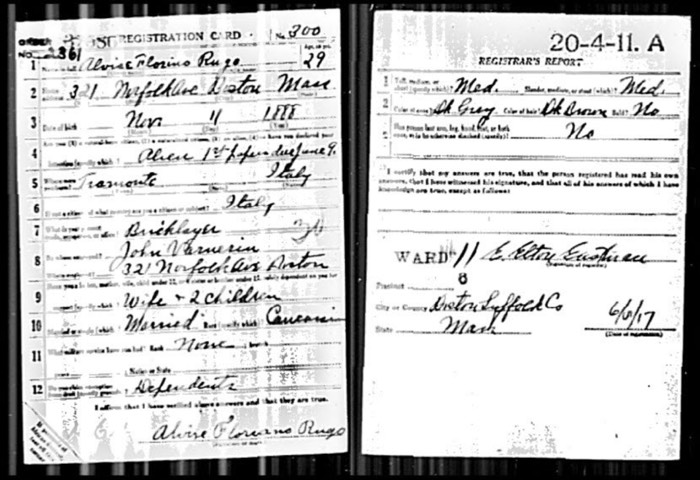 REGISTRATION CARD No. 300
361
1 Alvise Florino Rugo 29
2 321 Norfolk Ave Boston Mass
3 Date of birth Nov 11 1888
4 Alien 1st papers due June 9.
5 Tramonte Italy
6 Italy
7 Bricklayer
8 By whom employed? John Varnerin
Where employed? 321 Norfolk Ave Boston
9 Wife + 2 children
10 Married or single (which)? Married Race (specify which)?
11 What military service have you had? Rank None
Nation or State
12 Do you claim exemption from draft (specify grounds)? Dependents
I affirm that I have verified above answers and that they are true.
Alvise Floriano Rugo
20-4-11. A
REGISTRAR'S REPORT
1 Tall, medium, or short (specify which)? Med. Slender, medium, or stout (which)? Med.
2 Color of eyes? Dk Gray Color of hair? Dk Brown Bald? No
3 Has person lost arm, leg, hand, foot, or both eyes, or is he otherwise disabled (specify)? No
I certify that my answers are true, that the person registered has read his own
answers, that I have witnessed his signature, and that all of his answers of which I have
knowledge are true, except as follows:
WARD 11 E. Elton Eastman
(Signature of registrar)
Precinct 8
City or County Boston Suffolk Co 6/6/17
State Mass (Date of registration)